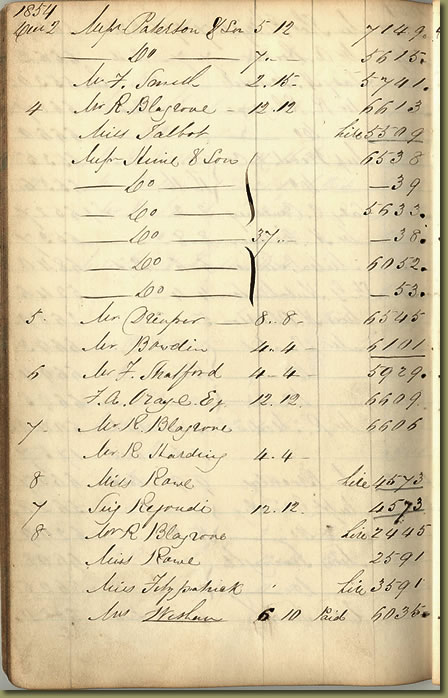 1854
2 Messrs Paterson & Son 5 12 7149.
Do 7 5615.
Mr F. Smith 2.15 5741.
4 Mr R Blagrove 12.12 6613
Miss Talbot hire 5509
Messrs & Son 6538
Do 39
Do 5633.
Do 37 38.
Do 6052.
Do 53.
5. Mr 8..8 6545
Mr Bowdin 4..4 6101
6 Mr F. 4..4 5929.
F.A. Esq 12.12. 6609
7. Mr R Blagrove 6606
Mr R Harding 4.4
8 Miss Rowe hire 4573
7 Sig Regondi 12.12. 4573
8 Mr R Blagrove hire 2445
Miss Rowe 2591
Miss Fitzpatrick hire 3591
Mrs 6 10 Paid 6035.